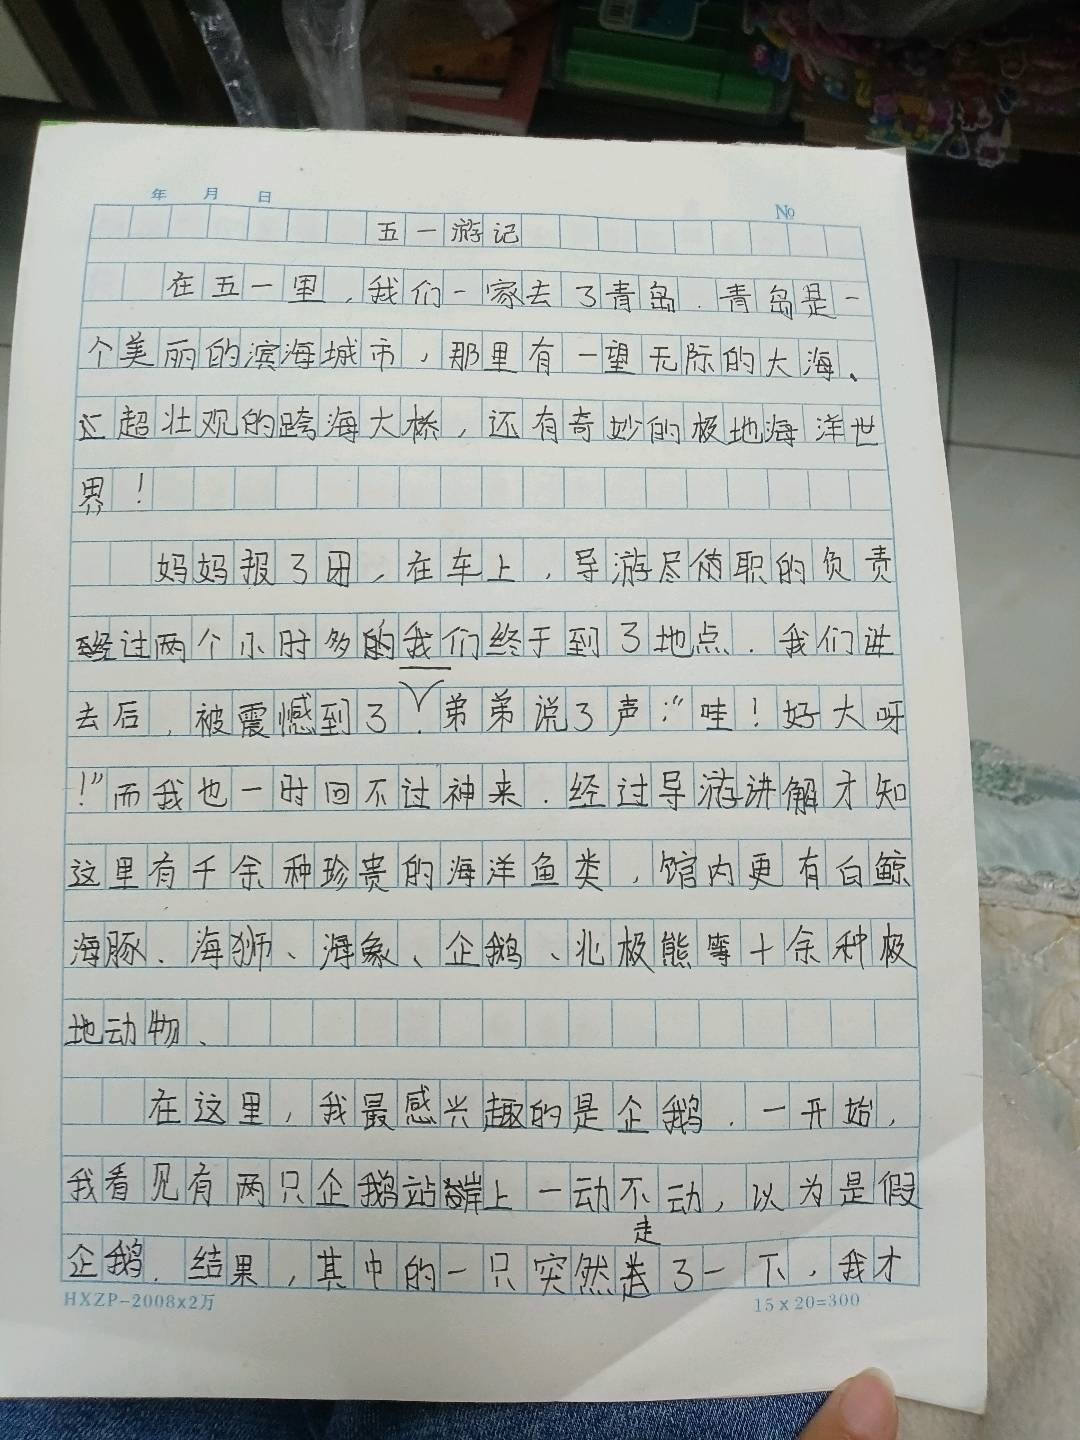 年 月 日 №
五一游记
在五一里，我们一家去了青岛．青岛是一
个美丽的滨海城市，那里有一望无际的大海、
超壮观的跨海大桥，还有奇妙的极地海洋世
界！
妈妈报了团，在车上，导游尽使职的负责
经过两个小时多的我们终于到了地点．我们进
去后，被震憾到了．弟弟说了声：“哇！好大呀
！”而我也一时回不过神来．经过导游讲解才知
这里有千余种珍贵的海洋鱼类，馆内更有白鲸
海豚、海狮、海象、企鹅、北极熊等十余种极
地动物、
在这里，我最感兴趣的是企鹅．一开始，
我看见有两只企鹅站岸上一动不动，以为是假
走
企鹅．结果，其中的一只突然了一下，我才
HXZP-2008x2万 15x20=300